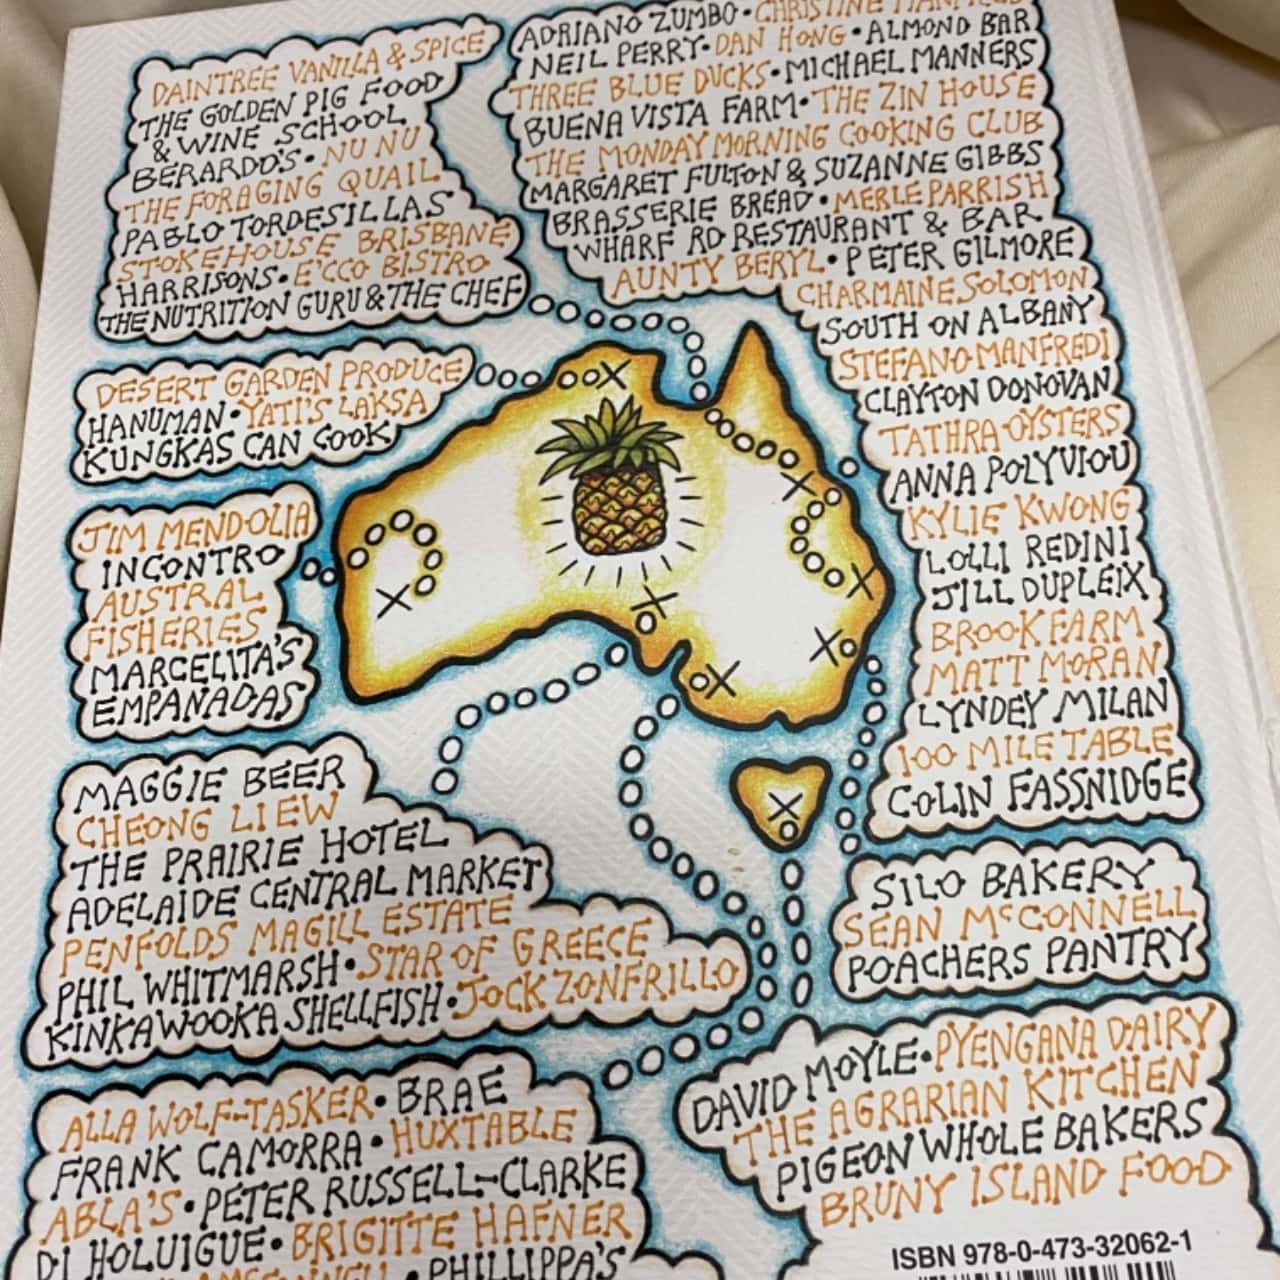 DAINTREE VANILLA & SPICE
THE GOLDEN PIG FOOD
& WINE SCHOOL
BERARDO'S • NU NU
THE FORAGING QUAIL
PABLO TORDESILLAS
STOKEHOUSE BRISBANE
HARRISONS • E'CCO BISTRO
THE NUTRITION GURU & THE CHEF
ADRIANO ZUMBO • CHRISTINE MANFIELD
NEIL PERRY • DAN HONG • ALMOND BAR
THREE BLUE DUCKS • MICHAEL MANNERS
BUENA VISTA FARM • THE ZIN HOUSE
THE MONDAY MORNING COOKING CLUB
MARGARET FULTON & SUZANNE GIBBS
BRASSERIE BREAD • MERLE PARRISH
WHARF RD RESTAURANT & BAR
AUNTY BERYL • PETER GILMORE
CHARMAINE SOLOMON
SOUTH ON ALBANY
STEFANO MANFREDI
CLAYTON DONOVAN
TATHRA OYSTERS
ANNA POLYVIOU
KYLIE KWONG
LOLLI REDINI
JILL DUPLEIX
BROOKFARM
MATT MORAN
LYNDEY MILAN
100 MILE TABLE
COLIN FASSNIDGE
DESERT GARDEN PRODUCE
HANUMAN • YATI'S LAKSA
KUNGKAS CAN COOK
JIM MENDOLIA
INCONTRO
AUSTRAL
FISHERIES
MARCELITA'S
EMPANADAS
MAGGIE BEER
CHEONG LIEW
THE PRAIRIE HOTEL
ADELAIDE CENTRAL MARKET
PENFOLDS MAGILL ESTATE
PHIL WHITMARSH • STAR OF GREECE
KINKAWOOKA SHELLFISH • JOCK ZONFRILLO
SILO BAKERY
SEAN McCONNELL
POACHERS PANTRY
ALLA WOLF-TASKER • BRAE
FRANK CAMORRA • HUXTABLE
ABLA'S • PETER RUSSELL-CLARKE
DI HOLUIGUE • BRIGITTE HAFNER
• PHILLIPPA'S
DAVID MOYLE • PYENGANA DAIRY
THE AGRARIAN KITCHEN
PIGEON WHOLE BAKERS
BRUNY ISLAND FOOD
ISBN 978-0-473-32062-1